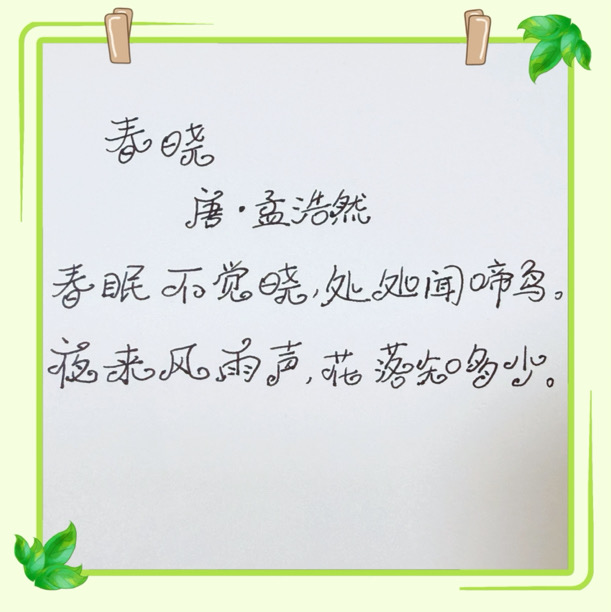 春晓
唐·孟浩然
春眠不觉晓,处处闻啼鸟。
夜来风雨声,花落知多少。